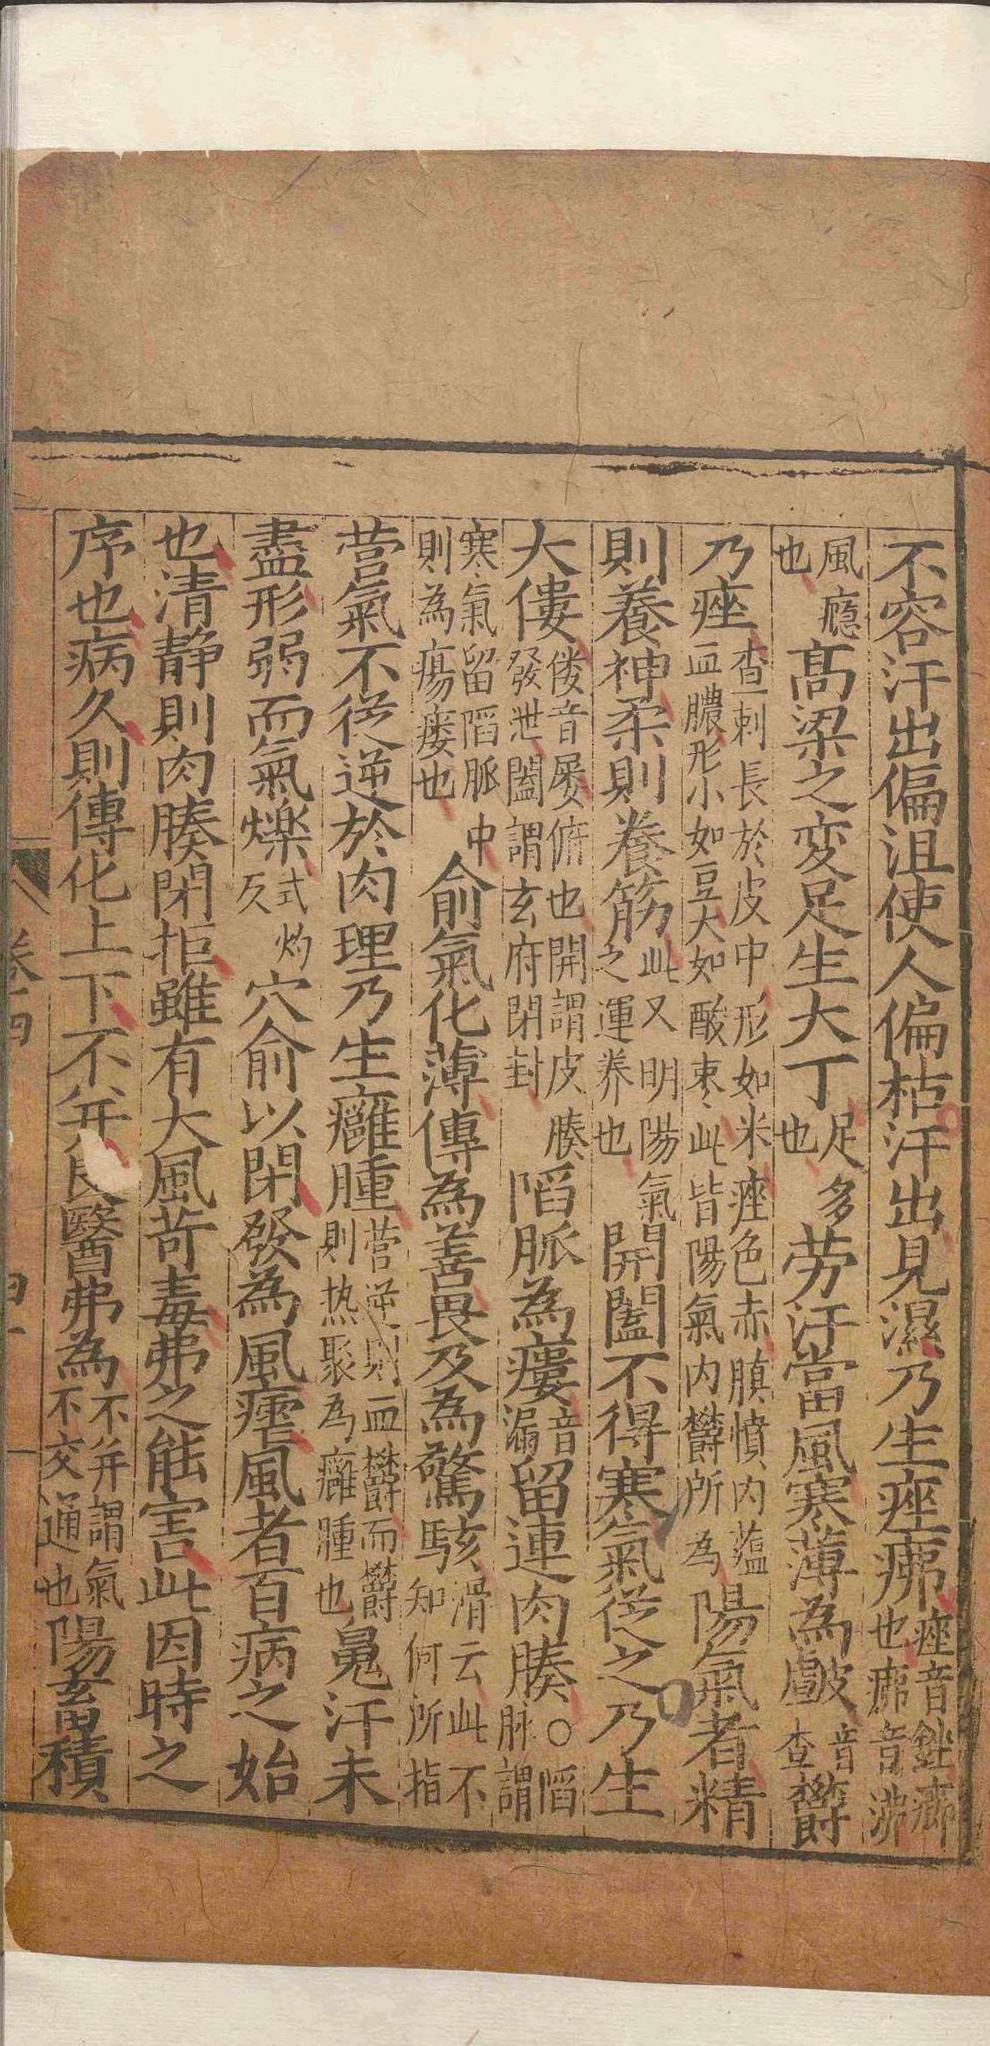 不容汗出偏沮使人偏枯汗出見濕乃生痤疿痤音銼癤也疿音沸
風癮也高梁之変足生大丁足多也劳汗當風寒薄為皶音查欝
乃痤查刺長於皮中形如米痤色赤䐜憤内蕴血膿形小如豆大如酸枣此皆陽氣内欝所為陽氣者精
則養神柔則養筋此又明陽氣之運养也開闔不得寒氣從之乃生
大僂偻音屡俯也開謂皮腠發泄闔謂玄府閉封陷脈為瘻音漏留連肉腠○陷脉謂
寒氣留陷脈中則為瘍瘘也俞氣化薄傳為善畏及為驚駭滑云此不知何所指
营氣不從逆於肉理乃生癰腫营逆則血欝而欝則热聚為癰腫也魄汗未
盡形弱而氣爍式灼反穴俞以閉發為風瘧風者百病之始
也清静則肉腠閉拒雖有大風苛毒弗之能害此因時之
序也病久則傳化上下不并良醫弗為不并謂氣不交通也陽畜積
卷四
四十一